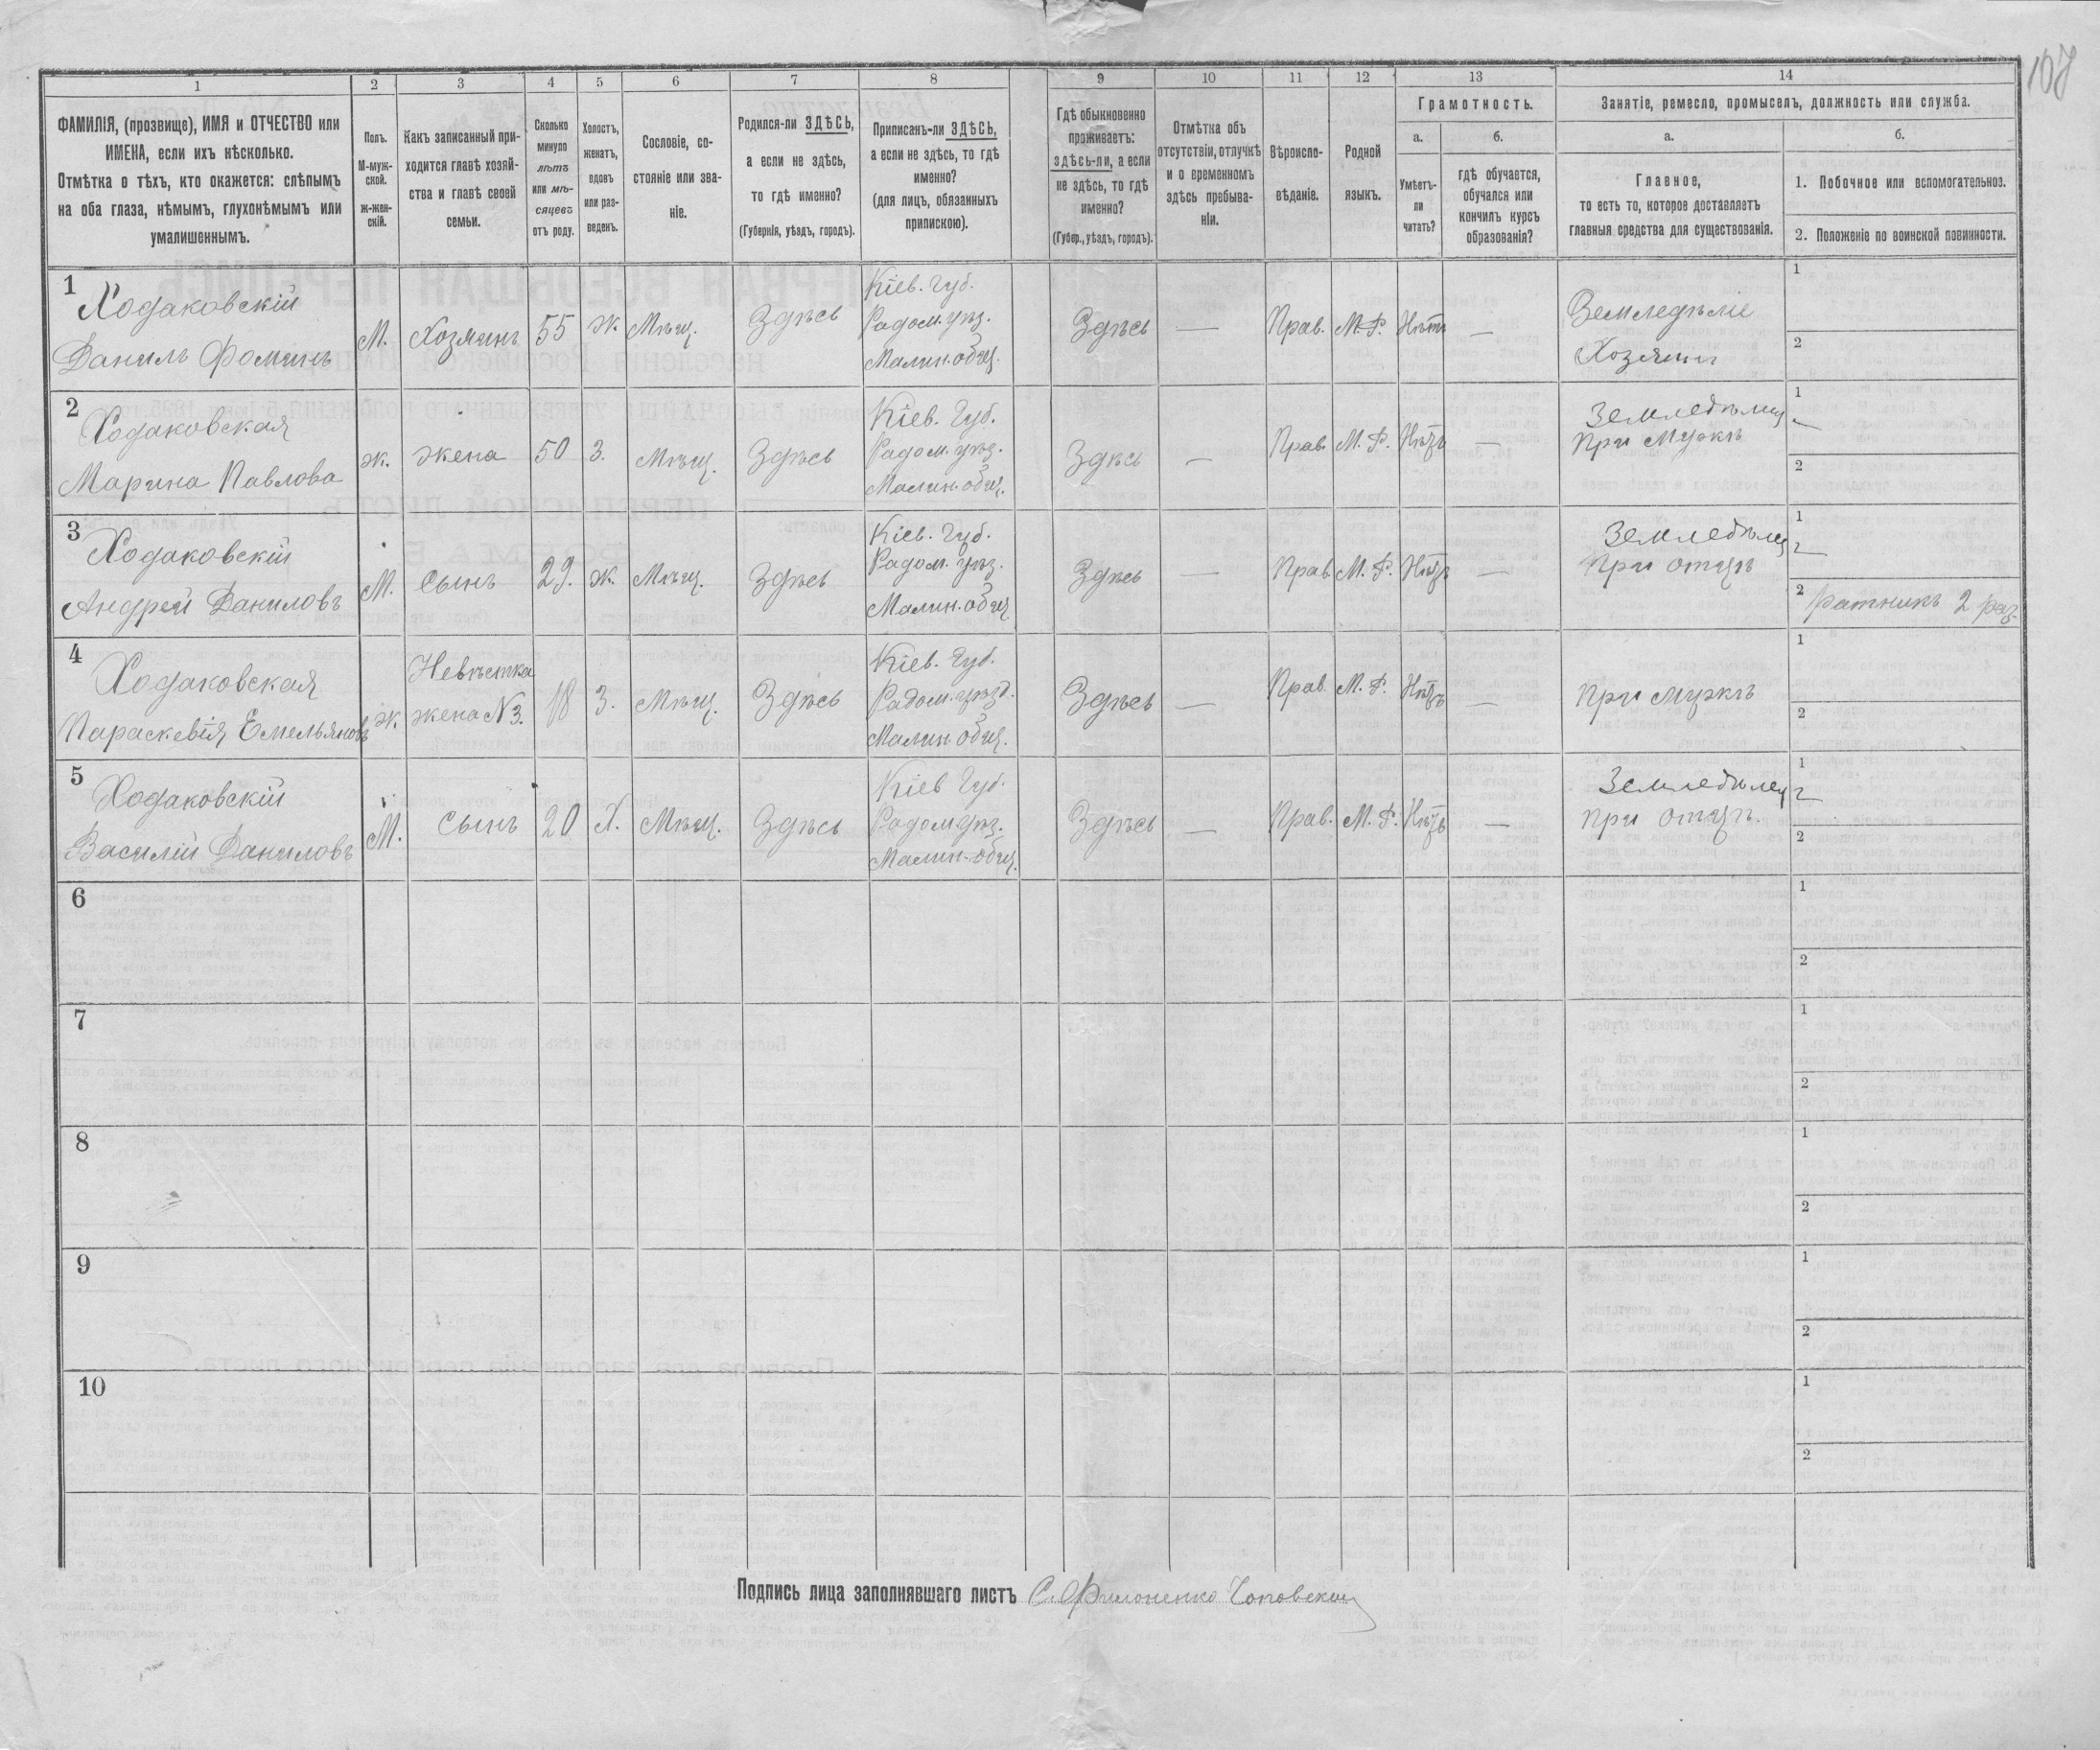 107
1 2 3 4 5 6 7 8 9 10 11 12 13 14
ФАМИЛІЯ, (прозвище), ИМЯ и ОТЧЕСТВО или
ИМЕНА, если ихъ нѣсколько.
Отмѣтка о тѣхъ, кто окажется: слѣпымъ
на оба глаза, нѣмымъ, глухонѣмымъ или
умалишеннымъ.
Полъ.
М-муж-
ской.
ж-жен-
скій.
Какъ записанный при-
ходится главѣ хозяй-
ства и главѣ своей
семьи.
Сколько
минуло
лѣтъ
или мѣ-
сяцевъ
отъ роду.
Холостъ,
женатъ,
вдовъ
или раз-
веденъ.
Сословіе, со-
стояніе или зва-
ніе.
Родился-ли ЗДѢСЬ,
а если не здѣсь,
то гдѣ именно?
(Губернія, уѣздъ, городъ).
Приписанъ-ли ЗДѢСЬ,
а если не здѣсь, то гдѣ
именно?
(для лицъ, обязанныхъ
припискою).
Гдѣ обыкновенно
проживаетъ:
здѣсь-ли, а если
не здѣсь, то гдѣ
именно?
(Губер., уѣздъ, городъ).
Отмѣтка объ
отсутствіи, отлучкѣ
и о временномъ
здѣсь пребыва-
ніи.
Вѣроиспо-
вѣданіе.
Родной
языкъ.
Грамотность.
а.
Умѣетъ-
ли
читать?
б.
гдѣ обучается,
обучался или
кончилъ курсъ
образованія?
Занятіе, ремесло, промыселъ, должность или служба.
а.
Главное,
то есть то, которое доставляетъ
главныя средства для существованія.
б.
1. Побочное или вспомогательное.
2. Положеніе по воинской повинности.
1
Ходаковскій
Данилъ Фоминъ
М.
Хозяинъ
55
ж.
Мѣщ.
Здѣсь
Кіев. Губ.
Радом. уѣз.
Малин. общ.
Здѣсь
—
Прав.
М. Р.
Нѣтъ
—
Земледѣліе
Хозяинъ
1
2
2
Ходаковская
Марина Павлова
ж.
жена
50
З.
Мѣщ.
Здѣсь
Кіев. Губ.
Радом. уѣз.
Малин. общ.
Здѣсь
—
Прав.
М. Р.
Нѣтъ
—
Земледѣлец
При Мужѣ
1
2
3
Ходаковскій
Андрей Даниловъ
М.
Сынъ
29.
ж.
Мѣщ.
Здѣсь
Кіев. Губ.
Радом. уѣз.
Малин. общ
Здѣсь
—
Прав.
М. Р.
Нѣтъ
—
Земледѣлец
При отцѣ
1
2 Ратникъ 2 раз.
4
Ходаковская
Параскевія Емельяновъ
ж.
Невѣстка
жена N 3.
18
З.
Мѣщ.
Здѣсь
Кіев. Губ.
Радом. уѣзд.
Малин общ.
Здѣсь
—
Прав.
М. Р.
Нѣтъ
—
При мужѣ
1
2
5
Ходаковскій
Василій Даниловъ
М.
Сынъ
20
Х.
Мѣщ.
Здѣсь
Кіев Губ.
Радом уѣз.
Малин. общ.
Здѣсь
—
Прав.
М. Р.
Нѣтъ
—
Земледѣлец
При отцѣ.
1
2
6
1
2
7
1
2
8
1
2
9
1
2
10
1
2
Подпись лица заполнявшаго листъ С. Филоненко